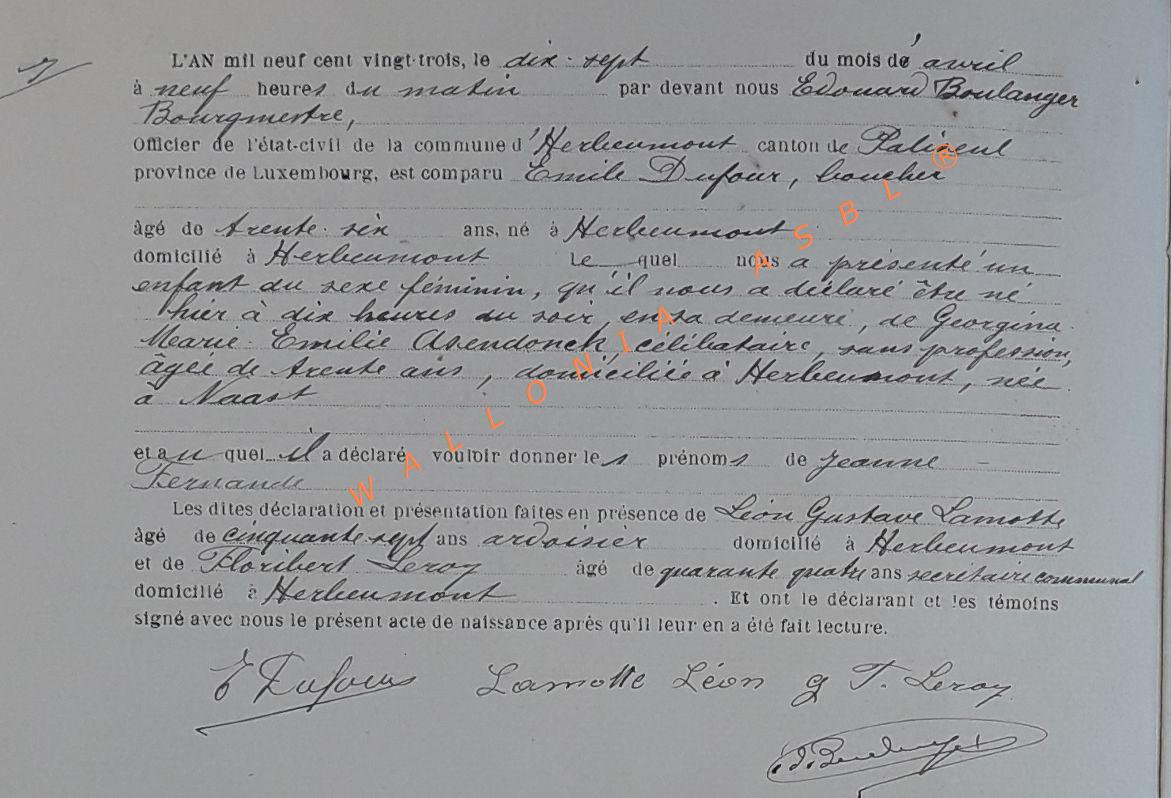 7
L'AN mil neuf cent vingt-trois, le dix-sept du mois d'avril
à neuf heures du matin par devant nous Edouard Boulanger
Bourgmestre,
Officier de l'état-civil de la commune d'Herbeumont canton de Paliseul
province de Luxembourg, est comparu Emile Dufour, boucher
âgé de trente-six ans, né à Herbeumont
domicilié à Herbeumont le quel nous a présenté un
enfant du sexe féminin, qu'il nous a déclaré être né
hier à dix heures du soir, en sa demeure, de Georgina
Marie Emilie Asendonck, célibataire, sans profession,
âgée de trente ans, domiciliée à Herbeumont, née
à Naast
et au quel il a déclaré vouloir donner les prénoms de Jeanne -
Fernande
Les dites déclaration et présentation faites en présence de Léon Gustave Lamotte
âgé de cinquante-sept ans ardoisier domicilié à Herbeumont
et de Floribert Leroy âgé de quarante quatre ans secrétaire communal
domicilié à Herbeumont. Et ont le déclarant et les témoins
signé avec nous le présent acte de naissance après qu'il leur en a été fait lecture.
E Dufour Lamotte Léon g F. Leroy
Ed. Boulanger
WALLONIA ASBL ®